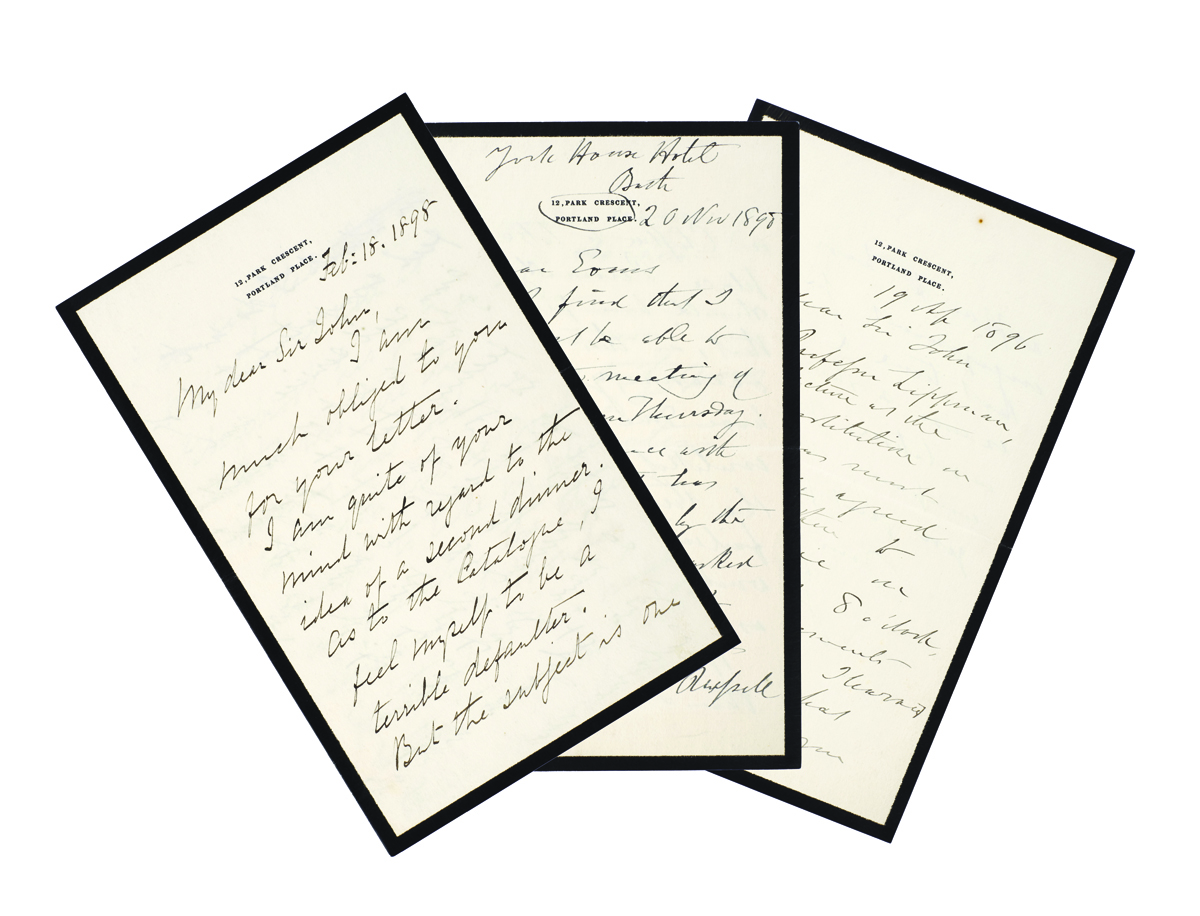 12, PARK CRESCENT,
PORTLAND PLACE.
Feb: 18. 1898
My dear Sir John,
I am
much obliged to you
for your letter.
I am quite of your
mind with regard to the
idea of a second dinner.
As to the Catalogue, I
feel myself to be a
terrible defaulter.
But the subject is one
York House Hotel
Bath
12, PARK CRESCENT,
PORTLAND PLACE.
20 Nov 1898
Evans
find that I
be able to
meeting of
Thursday.
with
has
by the
12, PARK CRESCENT,
PORTLAND PLACE.
19 Ap 1896
Sir John
Professor Lippmann,
at the
must
agreed
to
8 o'clock,
I learned
that